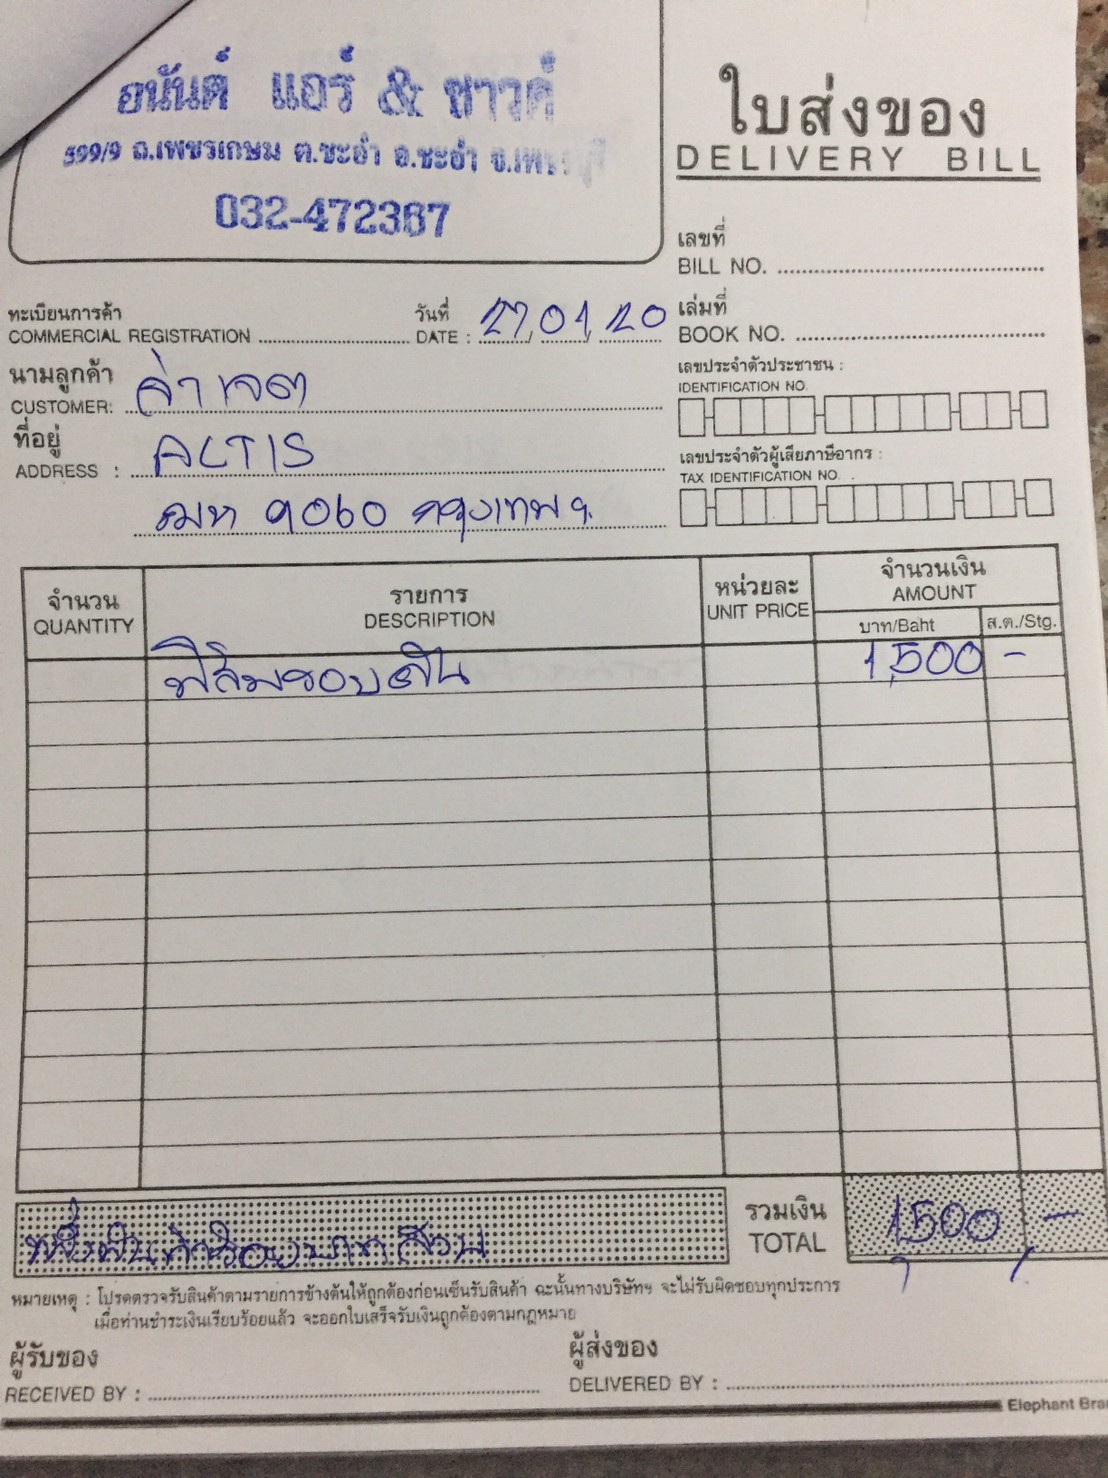 อนันต์ แอร์ & ซาวด์
599/9 ถ.เพชรเกษม ต.ชะอำ อ.ชะอำ จ.เพชรบุรี
032-472367
ใบส่งของ
DELIVERY BILL
เลขที่
BILL NO.
ทะเบียนการค้า
COMMERCIAL REGISTRATION
วันที่
DATE : 27, 01, 20
เล่มที่
BOOK NO.
นามลูกค้า
CUSTOMER: จ่า เจต
เลขประจำตัวประชาชน :
IDENTIFICATION NO.
ที่อยู่
ADDRESS : ALTIS
เลขประจำตัวผู้เสียภาษีอากร :
TAX IDENTIFICATION NO.
9060 กรุงเทพฯ
จำนวน
QUANTITY
รายการ
DESCRIPTION
หน่วยละ
UNIT PRICE
จำนวนเงิน
AMOUNT
บาท/Baht
ส.ต./Stg.
ฟิล์มรอบคัน 1,500 -
หนึ่งพันห้าร้อยบาทถ้วน
รวมเงิน
TOTAL
1,500 -
หมายเหตุ : โปรดตรวจรับสินค้าตามรายการข้างต้นให้ถูกต้องก่อนเซ็นรับสินค้า ฉะนั้นทางบริษัทฯ จะไม่รับผิดชอบทุกประการ
เมื่อท่านชำระเงินเรียบร้อยแล้ว จะออกใบเสร็จรับเงินถูกต้องตามกฎหมาย
ผู้รับของ
RECEIVED BY :
ผู้ส่งของ
DELIVERED BY :
Elephant Bra